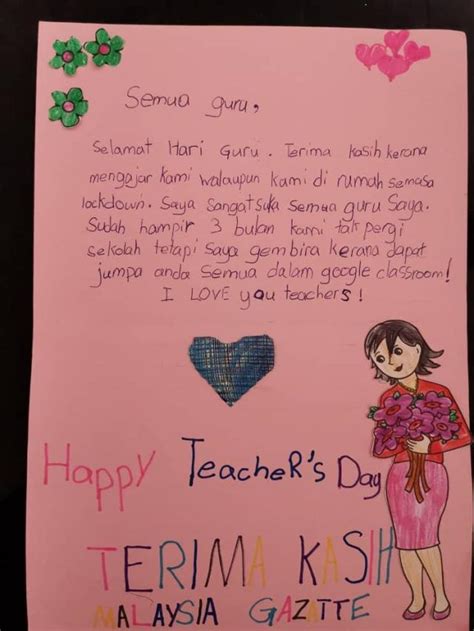 Semua guru,
Selamat Hari Guru. Terima kasih kerana
mengajar kami walaupun kami di rumah semasa
lockdown. Saya sangat suka semua guru saya.
Sudah hampir 3 bulan kami tak pergi
sekolah tetapi saya gembira kerana dapat
jumpa anda semua dalam google classroom!
I LOVE you teachers!
Happy TeacheR's Day
TERIMA KASIH
MALAYSIA GAZATTE